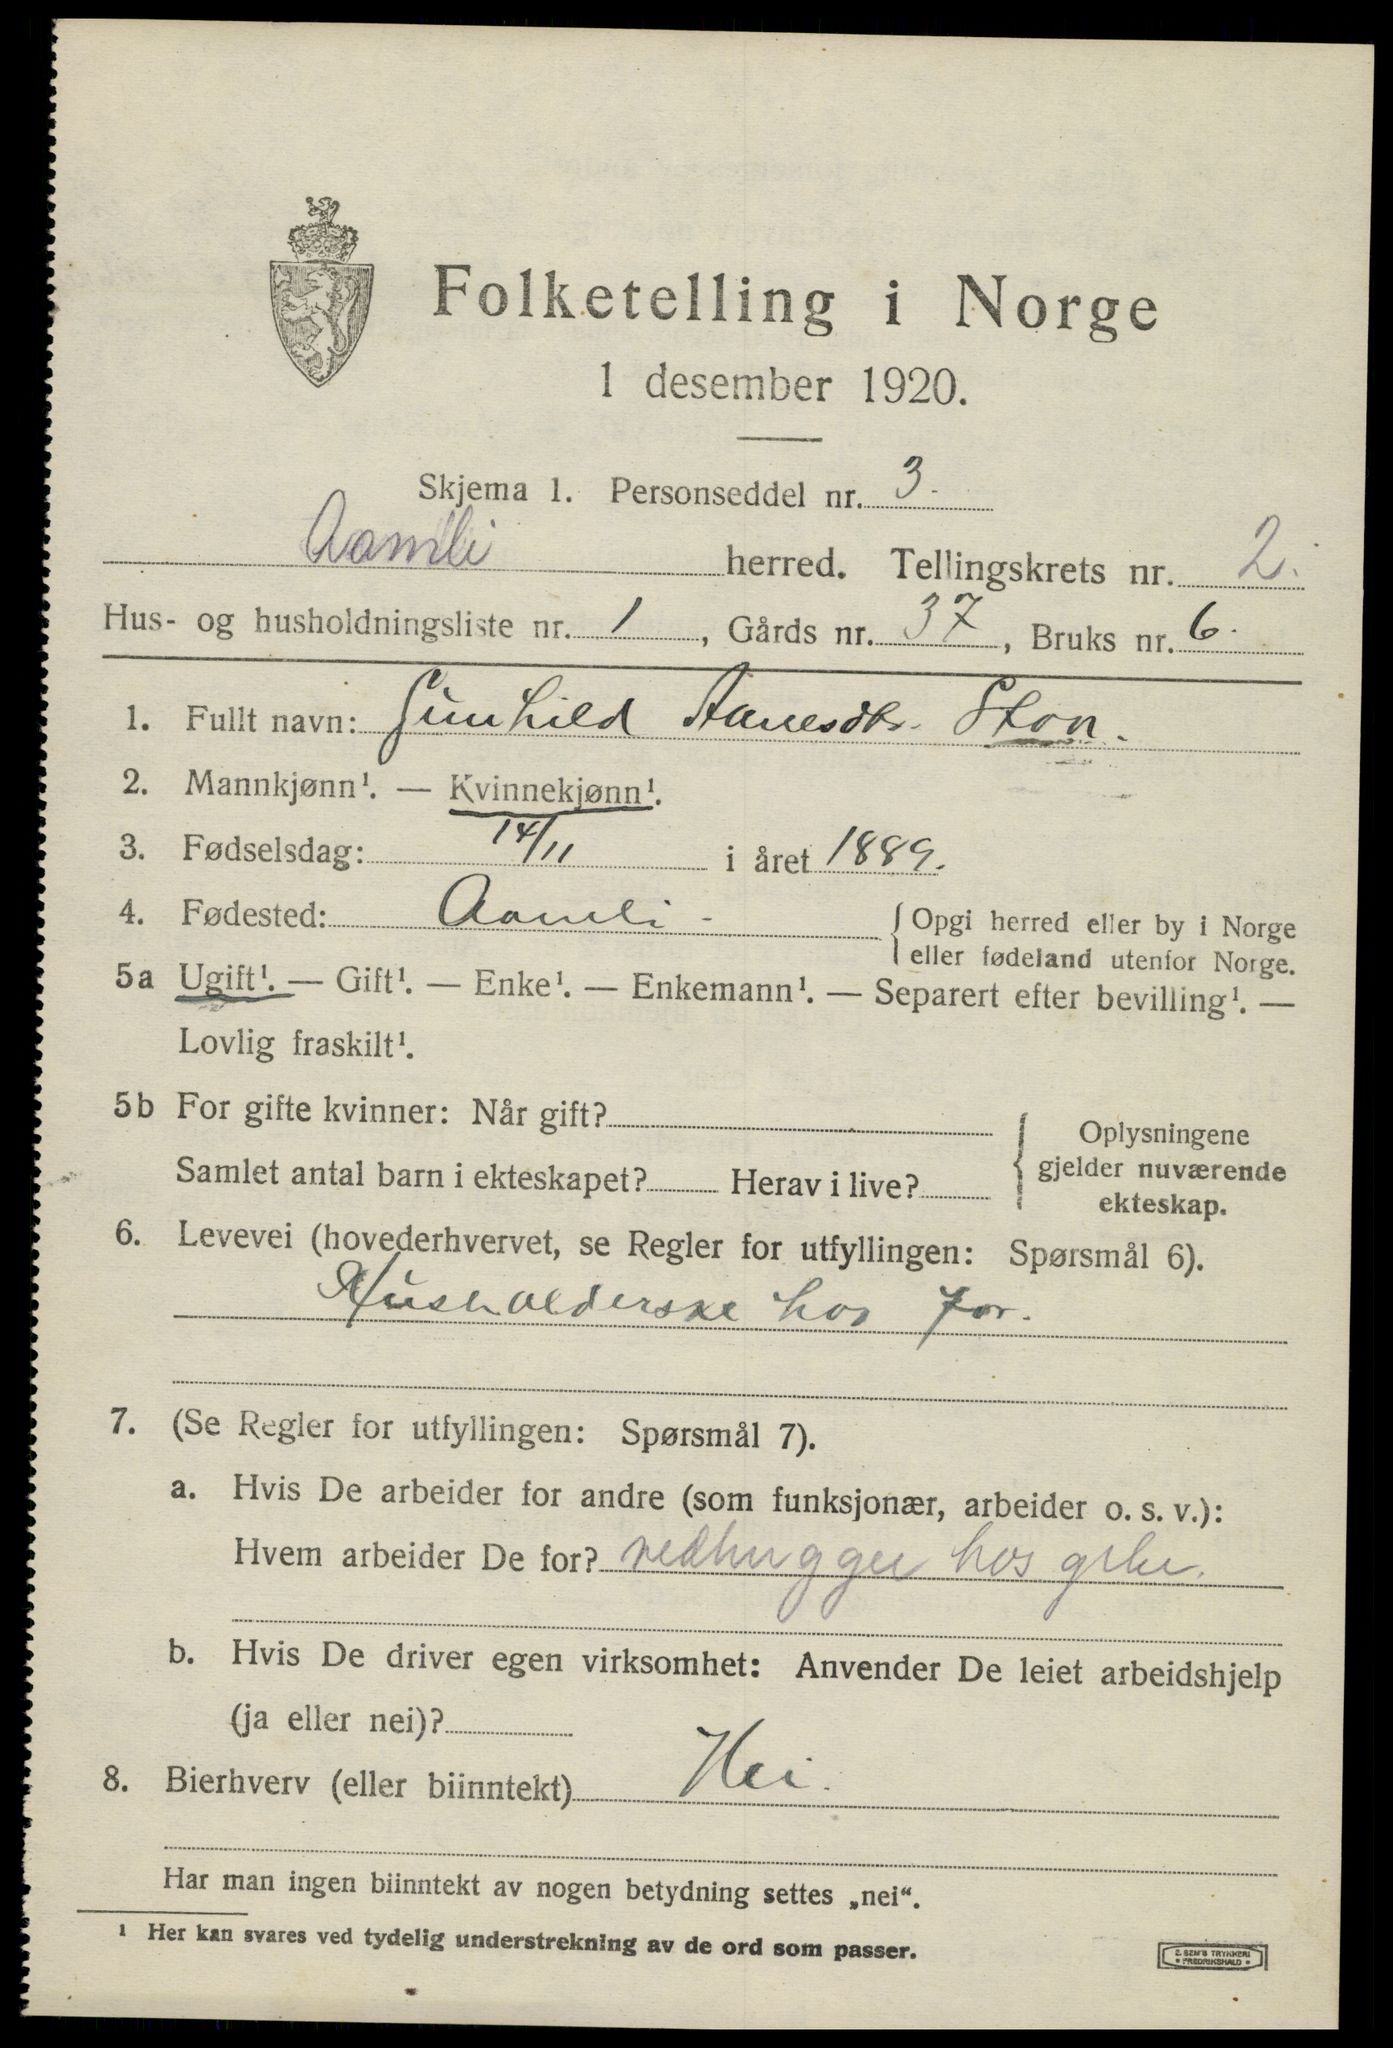 Folketelling i Norge
1 desember 1920.
Skjema 1. Personseddel nr. 3.
Aamli herred. Tellingskrets nr. 2.
Hus- og husholdningsliste nr. 1, Gårds nr. 37, Bruks nr. 6.
1. Fullt navn: Gunhild Aanesdtr. Ston.
2. Mannkjønn¹. — Kvinnekjønn¹.
3. Fødselsdag: 14/11 i året 1889.
4. Fødested: Aamli - { Opgi herred eller by i Norge
eller fødeland utenfor Norge.
5a Ugift¹. — Gift¹. — Enke¹. — Enkemann¹. — Separert efter bevilling¹. —
Lovlig fraskilt¹.
5b For gifte kvinner: Når gift?
Samlet antal barn i ekteskapet? Herav i live?
{ Oplysningene
gjelder nuværende
ekteskap.
6. Levevei (hovederhvervet, se Regler for utfyllingen: Spørsmål 6).
Husholderske hos far.
7. (Se Regler for utfyllingen: Spørsmål 7).
a. Hvis De arbeider for andre (som funksjonær, arbeider o. s. v.):
Hvem arbeider De for? vedhugger hos
b. Hvis De driver egen virksomhet: Anvender De leiet arbeidshjelp
(ja eller nei)?
8. Bierhverv (eller biinntekt) Nei.
Har man ingen biinntekt av nogen betydning settes „nei“.
¹ Her kan svares ved tydelig understrekning av de ord som passer.
E. SEM'S TRYKKERI
* FREDRIKSHALD *